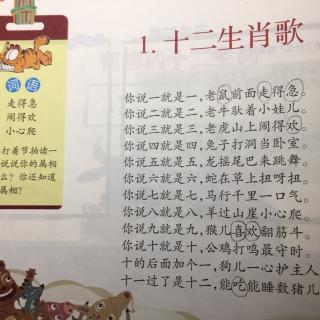 1. 十二生肖歌
词语
走得急
闹得欢
小心爬
打着节拍读一
说说你的属相
么？你还知道
属相？
你说一就是一，老鼠前面走得急。
你说二就是二，老牛驮着小娃儿。
你说三就是三，老虎山上闹得欢。
你说四就是四，兔子打洞当卧室。
你说五就是五，龙摇尾巴来跳舞。
你说六就是六，蛇在草上扭呀扭。
你说七就是七，马行千里一口气。
你说八就是八，羊过山崖小心爬。
你说九就是九，猴儿喜欢翻筋斗。
你说十就是十，公鸡打鸣最守时。
十的后面加个一，狗儿一心护主人
十一过了是十二，能吃能睡数猪儿